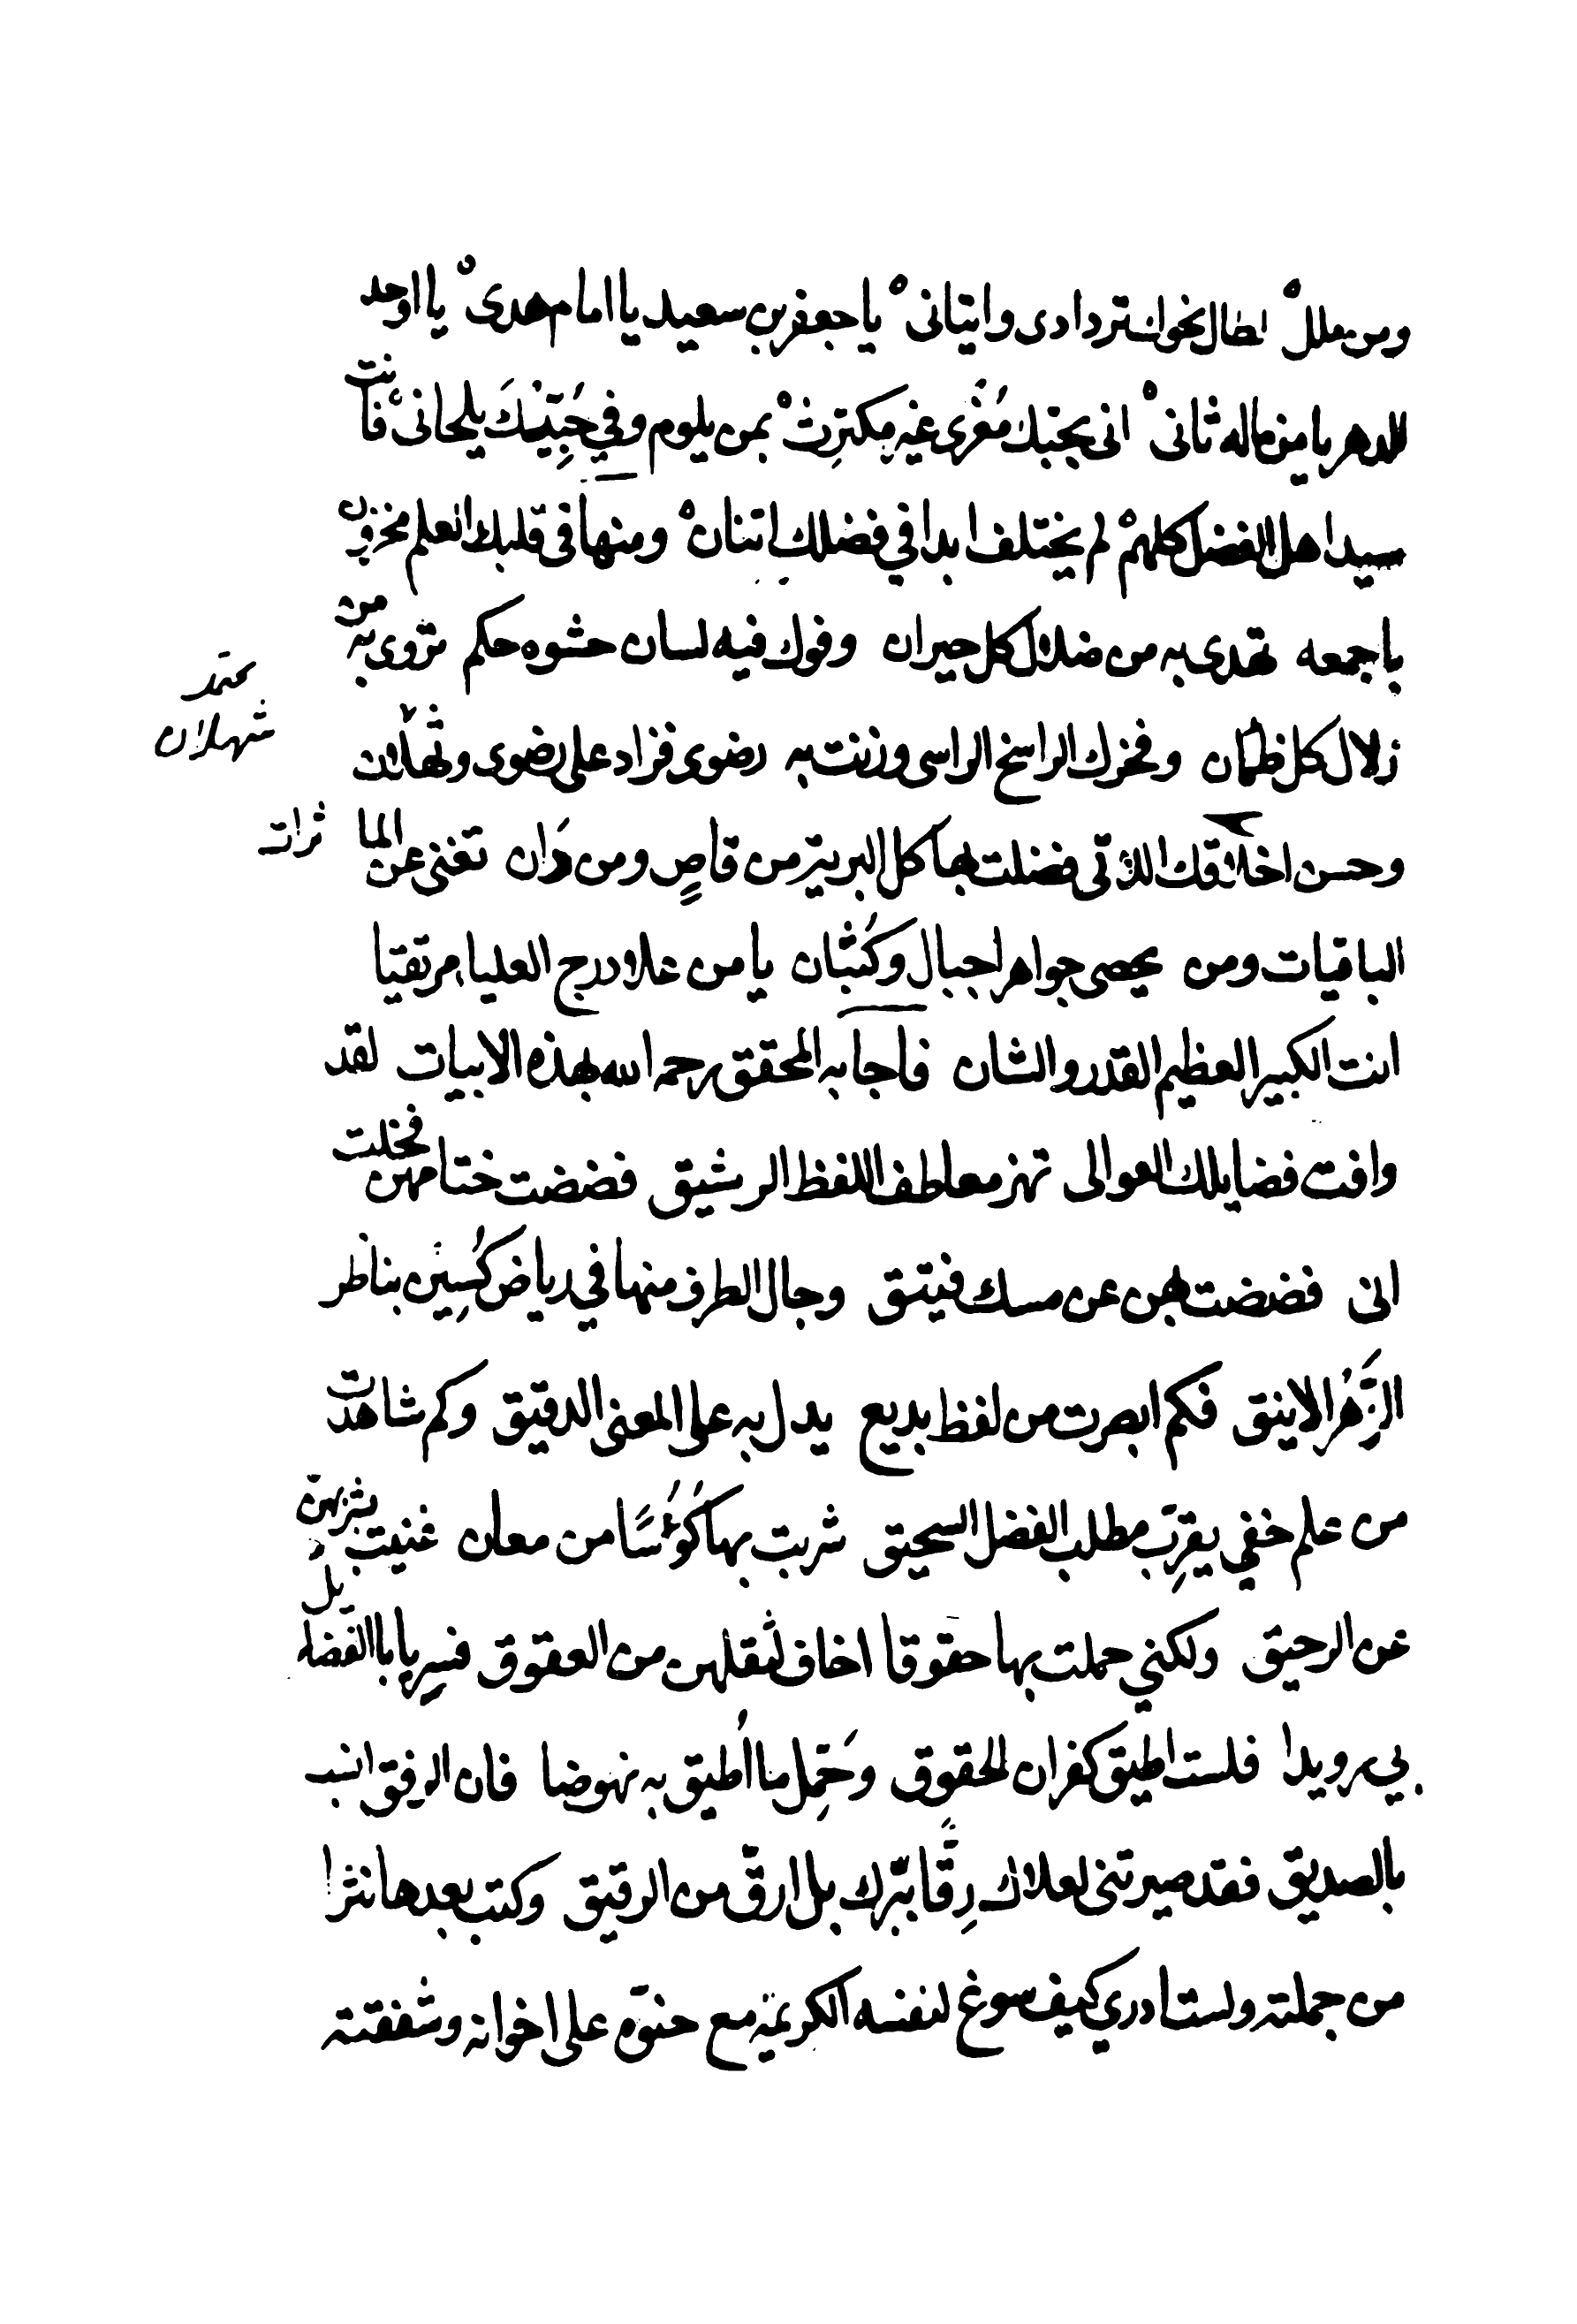 ومن ملل لطال نحوك تردادى واتيانى يا جعفر بن سعيد يا امام هدى يا اوحد
الدهر يا من ماله ثانى انى بحبك مُغرى غير مكترِث بمن يلوم وفي حُبِّيْكَ يلحانى فانت
سيد اهل الفضل كلهم لم يختلف ابدا في فضلك اثنان ومنها فى قلبك العلم مخزون
باجمعه تهدى به من ضلال كل حيران وفوك فيه لسان حشوه حكم تروى به من
زلال كل ظمآن وفخرك الراسخ الراسى وزنت به رضوى فزاد على رضوى وثهلان
محمد
شهلان
وحسن اخلاقك اللاتى فضلت بها كل البرية من قاصٍ ومن دَان تغنى عن الماثرات
الباقيات ومن يحصى جواهر اجبال وكُثبان يا من علا درج العليا مرتقيا
انت الكبير العظيم القدر والشان فاجابه المحقق رحمه الله بهذه الابيات لقد
وافت فضايلك العوالى تهز معاطف اللفظ الرشيق فضضت ختامهن فخلت
انى فضضت بهن عن مسك فتيق وجال الطرف منها في رياض كُسِين بناظر
الزَّهُر الانيق فكم ابصرت من لفظ بديع يدل به على المعنى الدقيق وكم شاهدت
من علم خفي يقرِب مطلب الفضل السحيق شربت بها كُؤُسًا من معان غنيت بشربهن
عن الرحيق ولكني حملت بها حقوقا اخاف لثقلهن من العقوق فسِر يا با الفضايل
بي رويدا فلست اطيق كفران الحقوق وحَمِّل ما اُطيق به نهوضا فان الرفق انسب
بالصديق فقد صيرتنى لعلاك رِقًّا ببّرك بل ارقّ من الرقيق وكتب بعدها نثرا
من جملته ولست ادري كيف سوغ لنفسه الكريمة مع حنوّه على اخوانه وشفقته